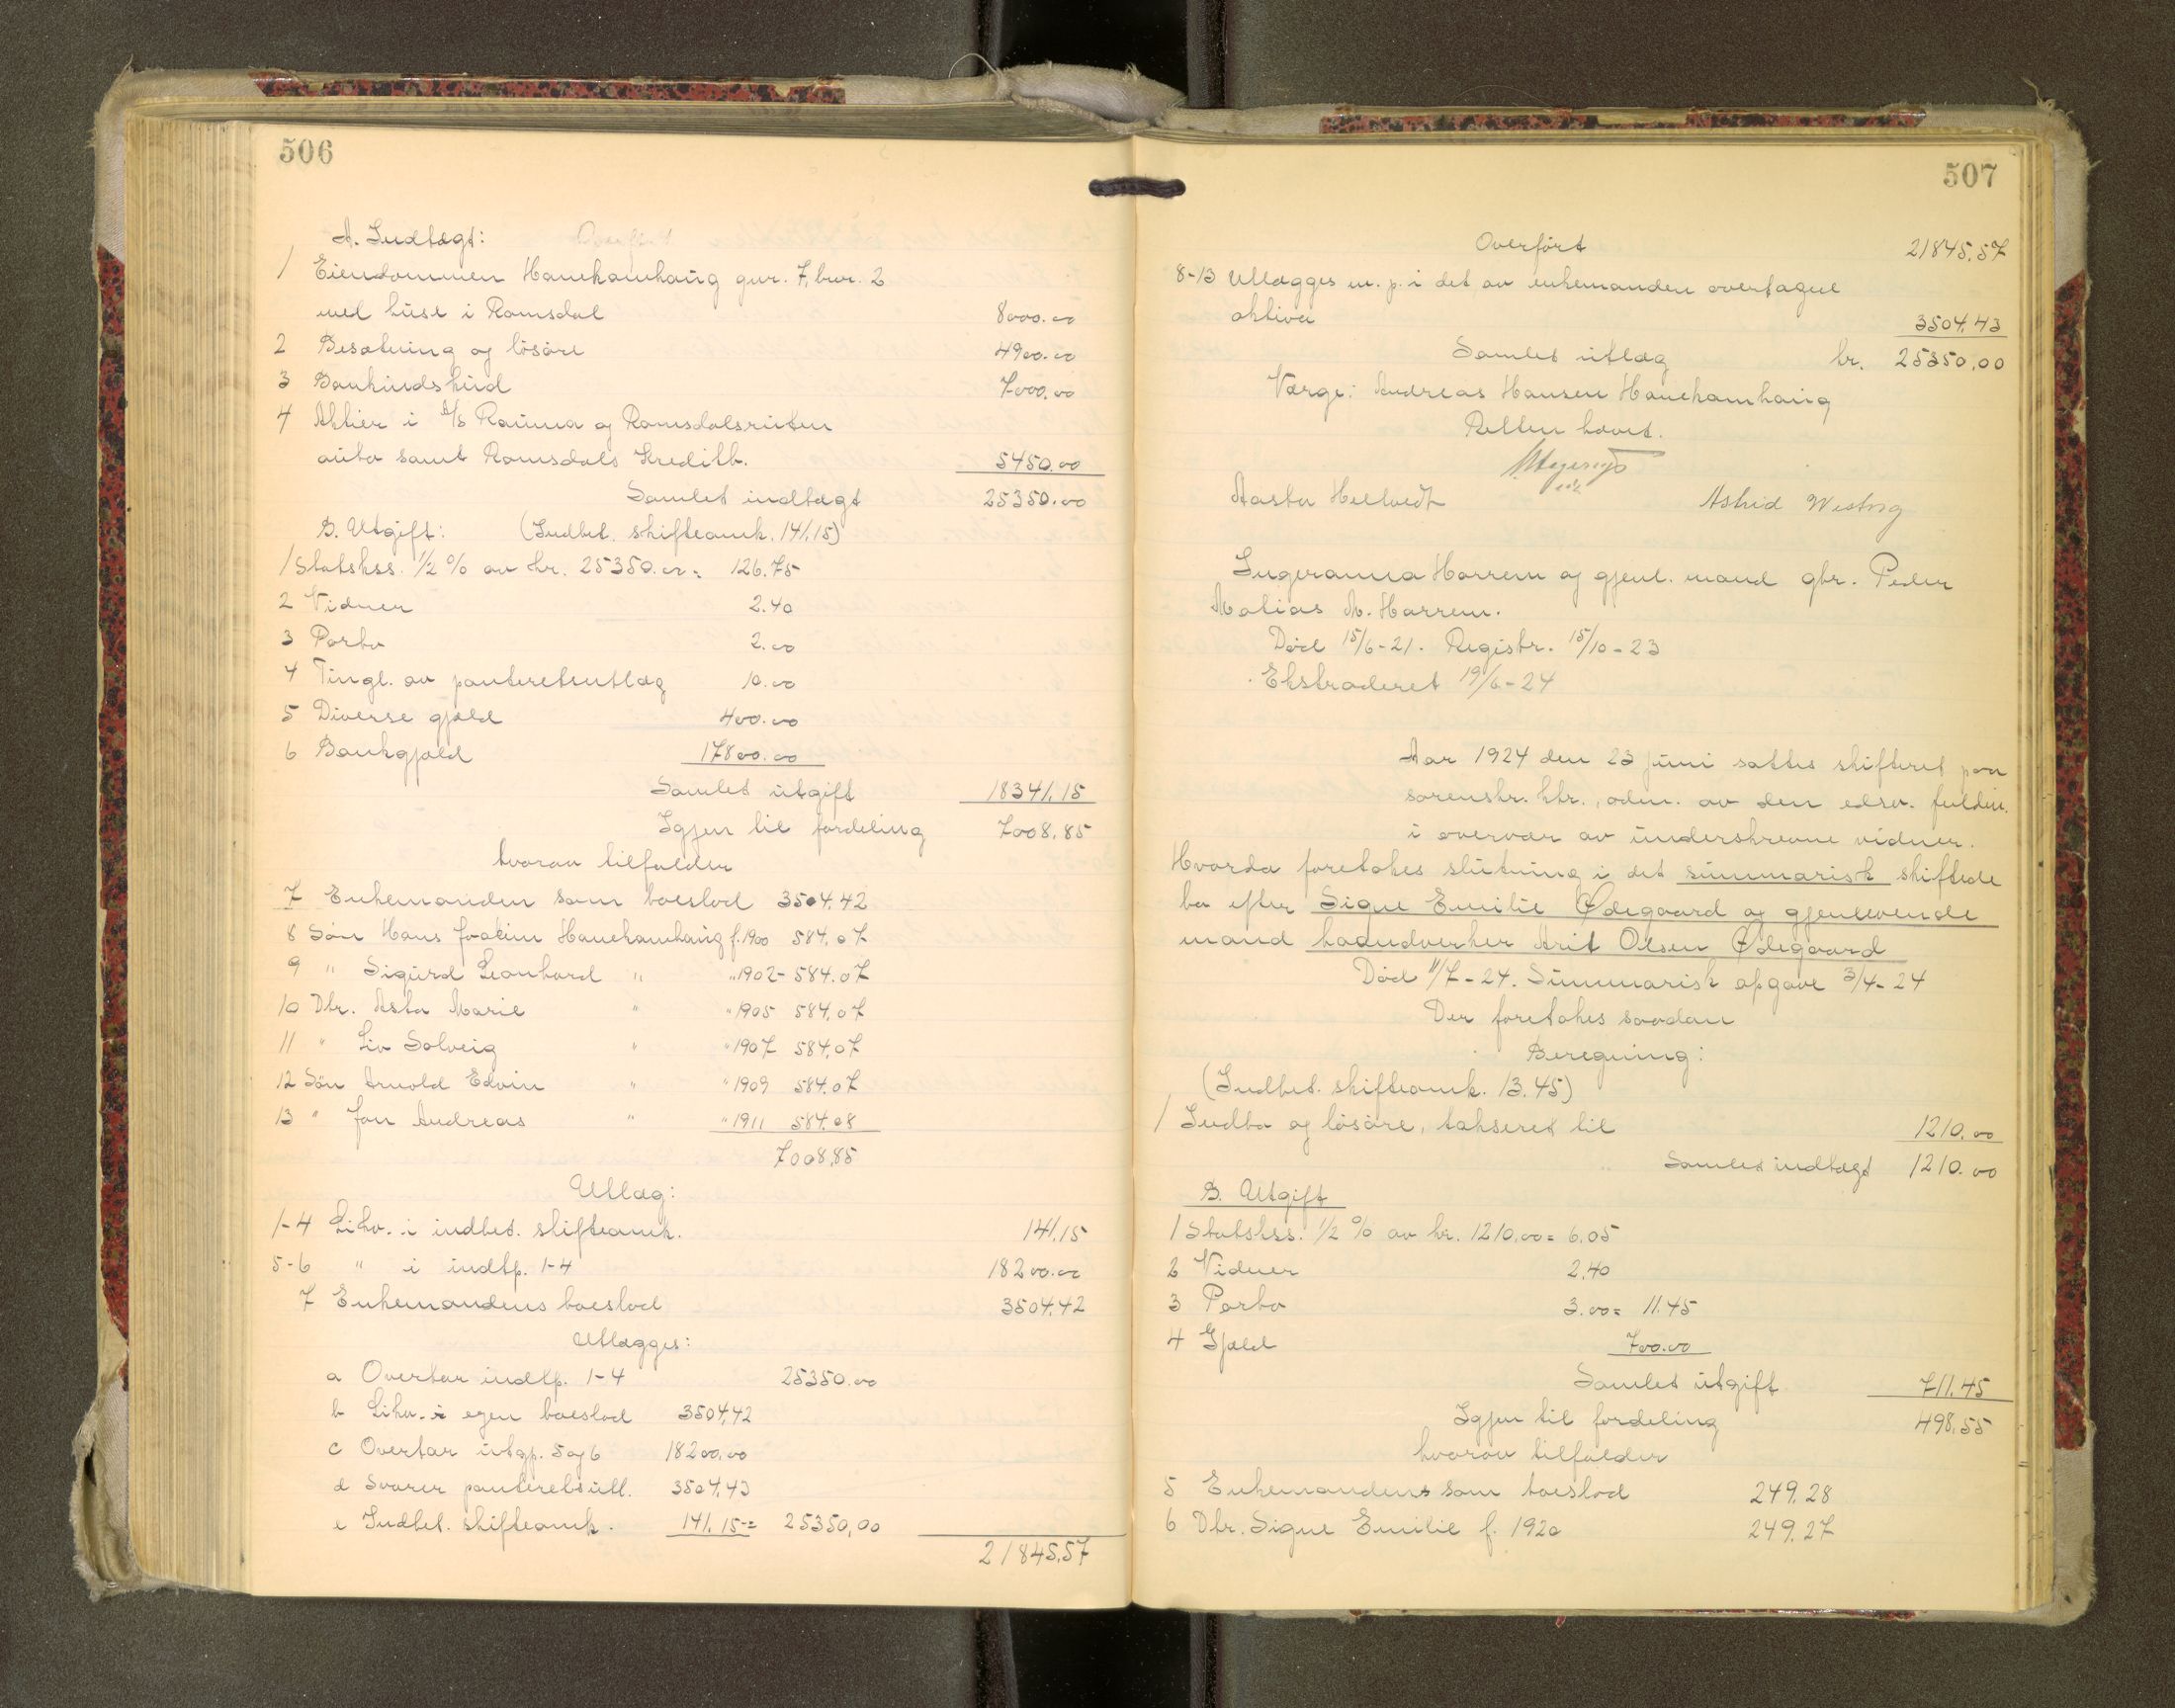 506
A. Indtægt:
1 Eiendommen Hanekamhaug gnr. 7, bnr. 2
med huse i Romsdal 8000.00
2 Besætning og løsøre 4900.00
3 Bankindskud 7000.00
4 Aktier i A/S Rauma og Romsdalsruten
auto samt Romsdals Kreditb. 5450.00
Samlet indtægt 25350.00
B. Utgift: (Indbet. skifteomk. 141.15)
1 Statskss. 1/2 % av kr. 25350.00 = 126.75
2 Vidner 2.40
3 Porto 2.00
4 Tingl. av panteretsutlæg 10.00
5 Diverse gjæld 400.00
6 Bankgjæld 17800.00
Samlet utgift 18341.15
Igjen til fordeling 7008.85
hvorav tilfalder
7 Enkemanden som boeslod 3504.42
8 Søn Hans Joakim Hanekamhaug f. 1900 584.07
9 " Sigurd Leonhard " " 1902 - 584.07
10 Dtr. Asta Marie " " 1905 584.07
11 " Liv Solveig " " 1907 584.07
12 Søn Arnold Edvin " " 1909 584.07
13 " Jon Andreas " " 1911 584.08
7008.85
Utlæg:
1-4 Likv. i indbet. skifteomk. 141.15
5-6 " i indtp. 1-4 18200.00
7 Enkemandens boeslod 3504.42
Utlægges:
a Overtar indtp. 1-4 25350.00
b Likv. i egen boeslod 3504.42
c Overtar utgp. 5 og 6 18200.00
d Svarer panteretsutl. 3504.43
e Indbet. skifteomk. 141.15 = 25350,00
21845.57
507
Overført 21845.57
8-13 Utlægges m. p. i det av enkemanden overtagne
aktiva 3504.43
Samlet utlæg kr. 25350,00
Værge: Andreas Hansen Hanekamhaug
Retten hævet.
Aasta Hellvedt Astrid
Ingeranna Harrem og gjenl. mand gbr. Peder
Matias M. Harrem.
Død 15/6-21. Registr. 15/10-23
Ekstraderet 19/6-24
Aar 1924 den 23 juni sattes skifteret paa
sorenskr. ktr., adm. av den edsv. fuldm.
i overvær av underskrevne vidner.
Hvorda foretokes slutning i det summarisk skiftede
bo efter Signe Emilie Ødegaard og gjenlevende
mand haandverker Arit Olsen Ødegaard
Død 1/7-24. Summarisk opgave 3/4-24
Der foretokes saadan
Beregning:
(Indbet. skifteomk. 13.45)
1 Indbo og løsøre, takseret til 1210.00
Samlet indtægt 1210.00
B. Utgift
1 Statskss. 1/2 % av kr. 1210.00 = 6.05
2 Vidner 2.40
3 Porto 3.00 = 11.45
4 Gjæld 700.00
Samlet utgift 711.45
Igjen til fordeling 498.55
hvorav tilfalder
5 Enkemanden som boeslod 249.28
6 Dtr. Signe Emilie f. 1920 249.27